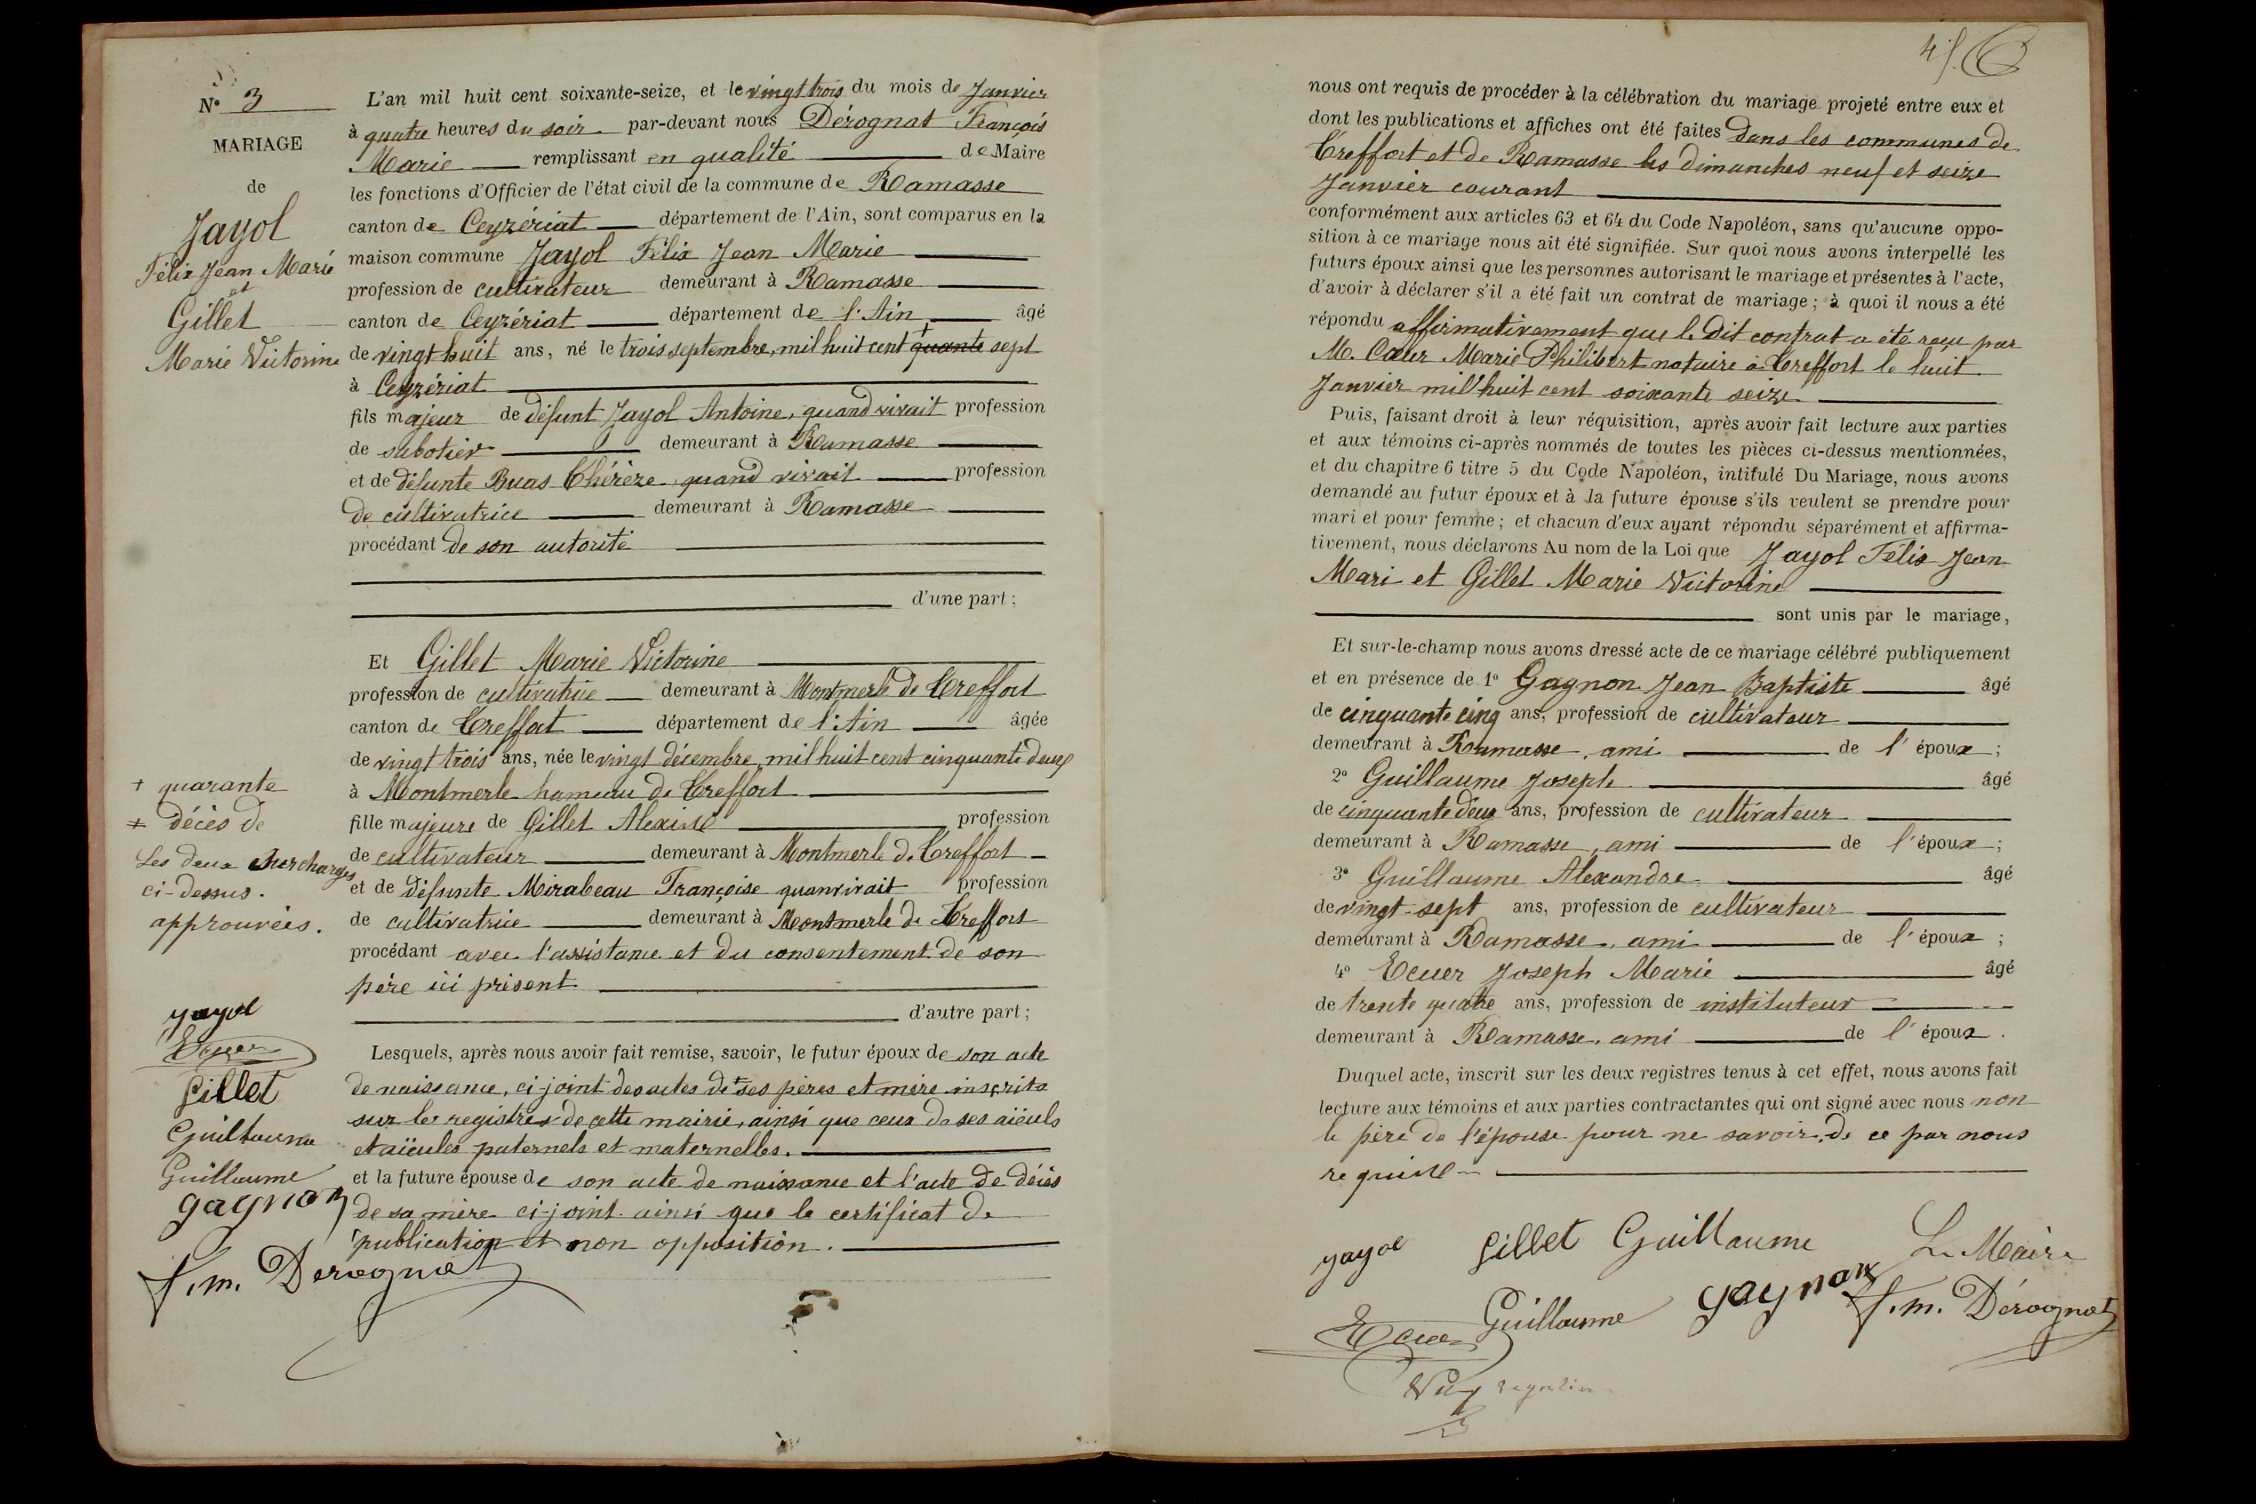 N° 3
MARIAGE
de
Jayol
Félix Jean Marie
et
Gillet
Marie Victorine
L'an mil huit cent soixante-seize, et le vingt trois du mois de Janvier
à quatre heures du soir par-devant nous Dérognat François
Marie remplissant en qualité de Maire
les fonctions d'Officier de l'état civil de la commune de Ramasse
canton de Ceyzériat département de l'Ain, sont comparus en la
maison commune Jayol Félix Jean Marie
profession de cultivateur demeurant à Ramasse
canton de Ceyzériat département de l'Ain âgé
de vingt huit ans, né le trois septembre, mil huit cent + quante sept
à Ceyzériat
fils majeur de défunt Jayol Antoine, quand vivait profession
de sabotier demeurant à Ramasse
et de défunte Buas Thérèze, quand vivait profession
de cultivatrice demeurant à Ramasse
procédant de son autorité
d'une part ;
Et Gillet Marie Victorine
profession de cultivatrice demeurant à Montmerle de Treffort
canton de Treffort département de l'Ain âgée
de vingt trois ans, née le vingt décembre, mil huit cent cinquante deux
à Montmerle hameau de Treffort
fille majeure de Gillet Alexis profession
de cultivateur demeurant à Montmerle de Treffort
et de défunte Mirabeau Françoise quanvivait profession
de cultivatrice demeurant à Montmerle de Treffort
procédant avec l'assistance et du consentement de son
père ici présent
d'autre part ;
Lesquels, après nous avoir fait remise, savoir, le futur époux de son acte
de naissance, ci-joint des actes de ‡ ses pères et mère inscrits
sur les registres de cette mairie, ainsi que ceux de ses aïeuls
et aïeules paternels et maternelles.
et la future épouse de son acte de naissance et l'acte de décès
de sa mère ci-joint ainsi que le certificat de
publication et non opposition.
+ quarante
‡ décès de
Les deux surcharges
ci-dessus.
approuvées.
yayol
Ecuer
Gillet
Guillaume
Guillaume
gagnon
f. m. Derognat
4
nous ont requis de procéder à la célébration du mariage projeté entre eux et
dont les publications et affiches ont été faites dans les communes de
Treffort et de Ramasse les dimanches neuf et seize
Janvier courant
conformément aux articles 63 et 64 du Code Napoléon, sans qu'aucune oppo-
sition à ce mariage nous ait été signifiée. Sur quoi nous avons interpellé les
futurs époux ainsi que les personnes autorisant le mariage et présentes à l'acte,
d'avoir à déclarer s'il a été fait un contrat de mariage ; à quoi il nous a été
répondu affirmativement que le dit contrat a été reçu par
M. Cœur Marie Philibert notaire à Treffort le huit
Janvier mil huit cent soixante seize.
Puis, faisant droit à leur réquisition, après avoir fait lecture aux parties
et aux témoins ci-après nommés de toutes les pièces ci-dessus mentionnées,
et du chapitre 6 titre 5 du Code Napoléon, intitulé Du Mariage, nous avons
demandé au futur époux et à la future épouse s'ils veulent se prendre pour
mari et pour femme ; et chacun d'eux ayant répondu séparément et affirma-
tivement, nous déclarons Au nom de la Loi que Jayol Félix Jean
Mari et Gillet Marie Victorine
sont unis par le mariage,
Et sur-le-champ nous avons dressé acte de ce mariage célébré publiquement
et en présence de 1° Gagnon Jean Baptiste âgé
de cinquante cinq ans, profession de cultivateur
demeurant à Ramasse, ami de l'époux ;
2° Guillaume Joseph âgé
de cinquante deux ans, profession de cultivateur
demeurant à Ramasse, ami de l'époux ;
3° Guillaume Alexandre âgé
de vingt-sept ans, profession de cultivateur
demeurant à Ramasse, ami de l'époux ;
4° Ecuer Joseph Marie âgé
de trente quatre ans, profession de instituteur
demeurant à Ramasse, ami de l'époux.
Duquel acte, inscrit sur les deux registres tenus à cet effet, nous avons fait
lecture aux témoins et aux parties contractantes qui ont signé avec nous non
le père de l'épouse pour ne savoir, de ce par nous
requis
yayol Gillet Guillaume Le Maire
Ecuer Guillaume gagnon f. m. Dérognat